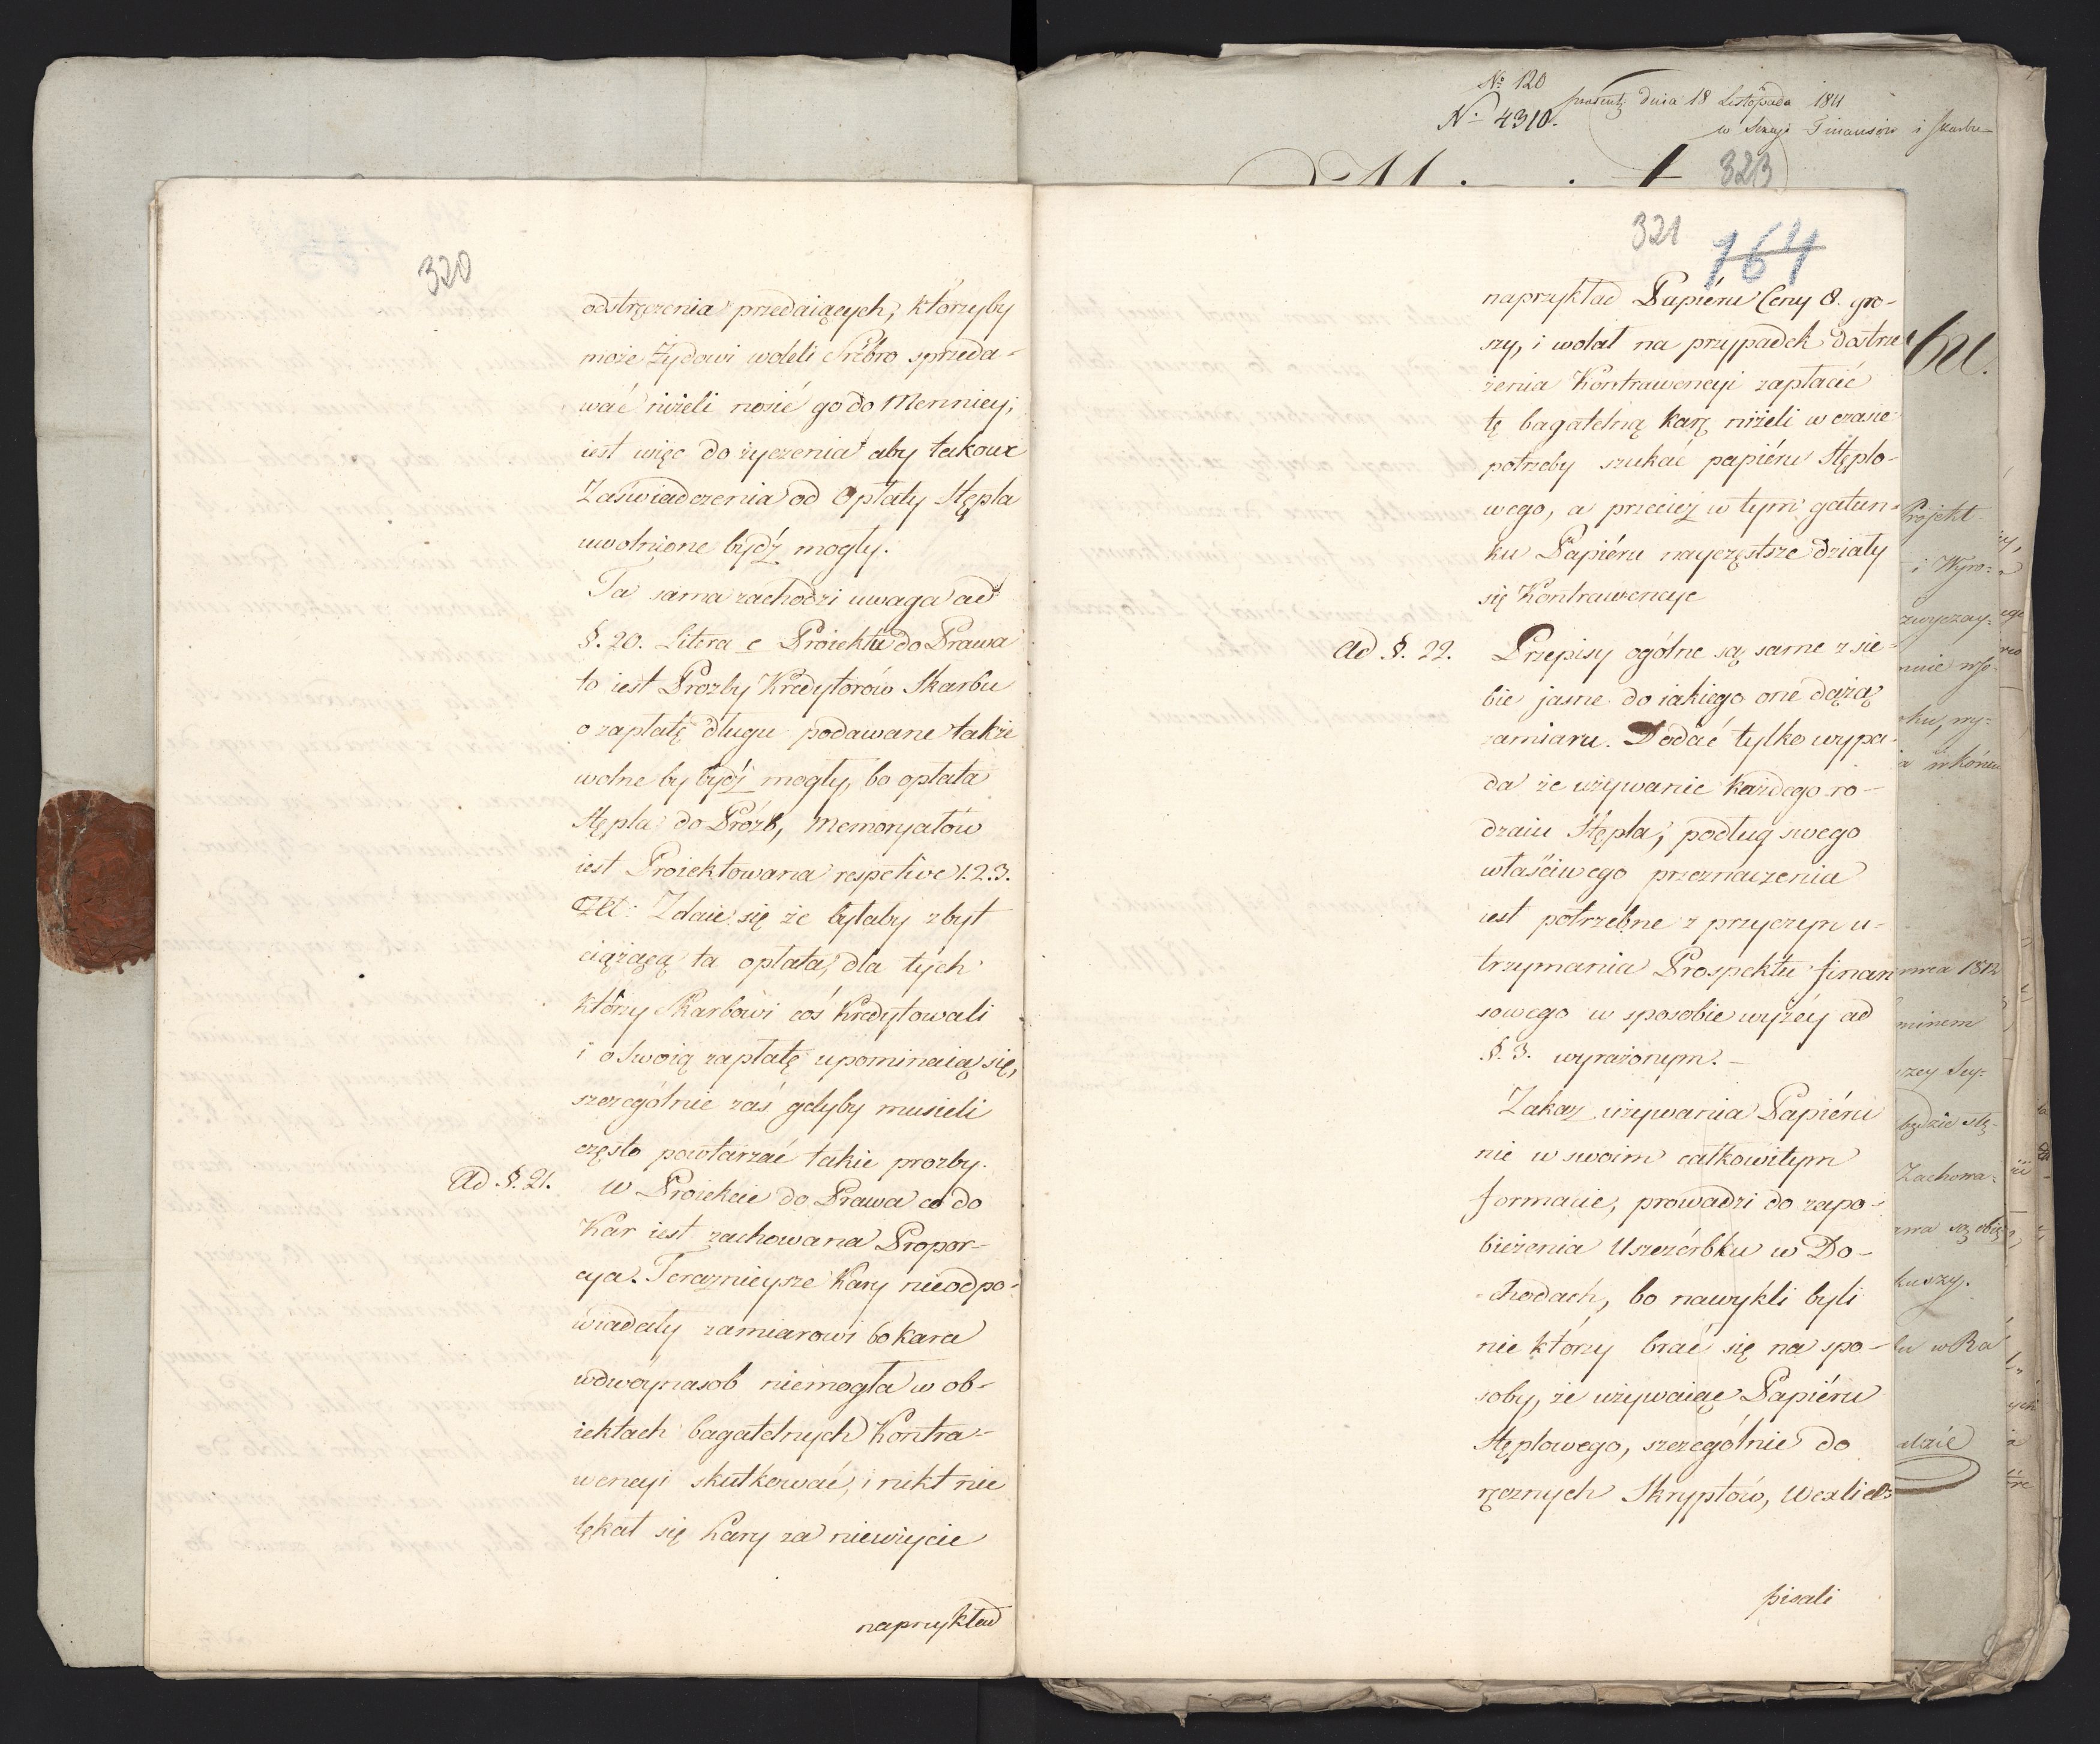 320
odstręczenia przedaiących, którzyby
może Żydowi woleli Srébro sprzeda-
wać niżeli nosić go do Mennicy,
iest więc do życzenia aby takowe
Zaświadczenia od Opłaty Stępla
uwolnione bydź mogły.
Ta sama zachodzi uwaga ad
§. 20. Litera c Proiektu do Prawa
to iest Prozby Kredytorów Skarbu
o zapłatę długu podawane także
wolne by bydź mogły, bo opłata
Stępla do Próźb, Memoryałów
iest Proiektowana respetive 1. 2. 3.
Zdaie się że byłaby zbyt
ciążącą ta opłata, dla tych
którzy Skarbowi coś Kredytowali
i o Swoią zapłatę upominaią się,
szczególnie zaś gdyby musieli
często powtarzać takie prozby.
Ad §. 21. W Proiekcie do Prawa co do
Kar iest zachowana Propor-
cya. Teraznieysze Kary nieodpo-
wiadały zamiarowi bo kara
wdwóynasob niemogła w ob-
iektach bagatelnych Kontra-
wencyi skutkować, i nikt nie
lękał się Kary za nieużycie
naprzykład
No 120
N. 4310.
dnia 18 Listopada 1811
w Sekcyi Finansów i Skarbu
323
321
164
naprzykład Papiéru Ceny 8. gro-
szy, i wolał na przypadek dostrze
żenia Kontrawencyi zapłacić
tę bagatelną karę niżeli w czasie
potrzeby szukać papiéru Stęplo-
wego, a przecież w tym gatun-
ku Papiéru nayczęstsze działy
się Kontrawencye
Ad §. 22. Przepisy ogólne są same z sie-
bie jasne do iakiego one dążą
zamiaru. Dodać tylko wypa-
da że używanie każdego ro-
dzaiu Stępla, podług swego
właściwego przeznaczenia
iest potrzebne z przyczyn u-
trzymania Prospektu finan
sowego w sposobie wyżéy ad
§. 3. wyrażonym. –
Zakaz używania Papiéru
nie w swoim całkowitym
formacie, prowadzi do zapo-
bieżenia Uszczérbku w Do-
-chodach, bo nawykli byli
nie którzy brać się na spo-
soby, że używaiąc Papiéru
Stęplowego, szczególnie do
ręcznych Skryptów, Wexlied
pisali
Projekt
i Wyro-
zwyczay-
1812
będzie stę-
Zachowa-